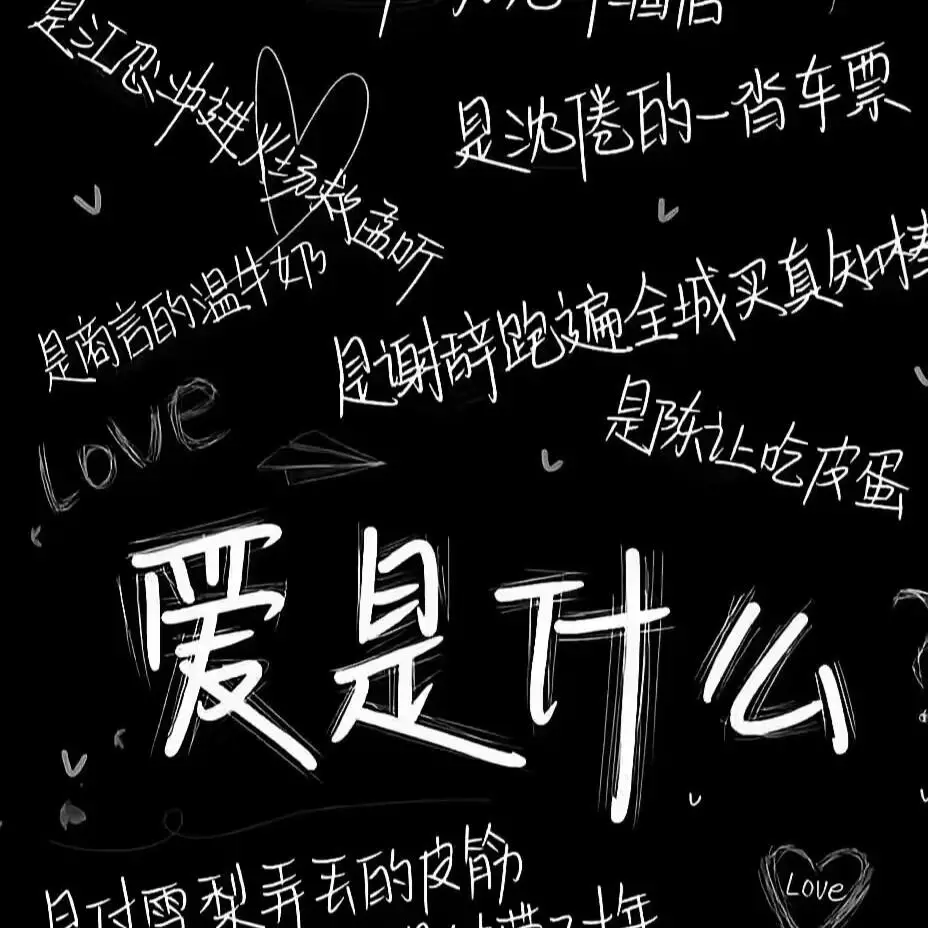 是江忍冲进火场救孟听
是沈倦的一沓车票
是商言的温牛奶
是谢辞跑遍全城买真知棒
Love
是陈让吃皮蛋
爱是什么
是付雪梨弄丢的皮筋
Love